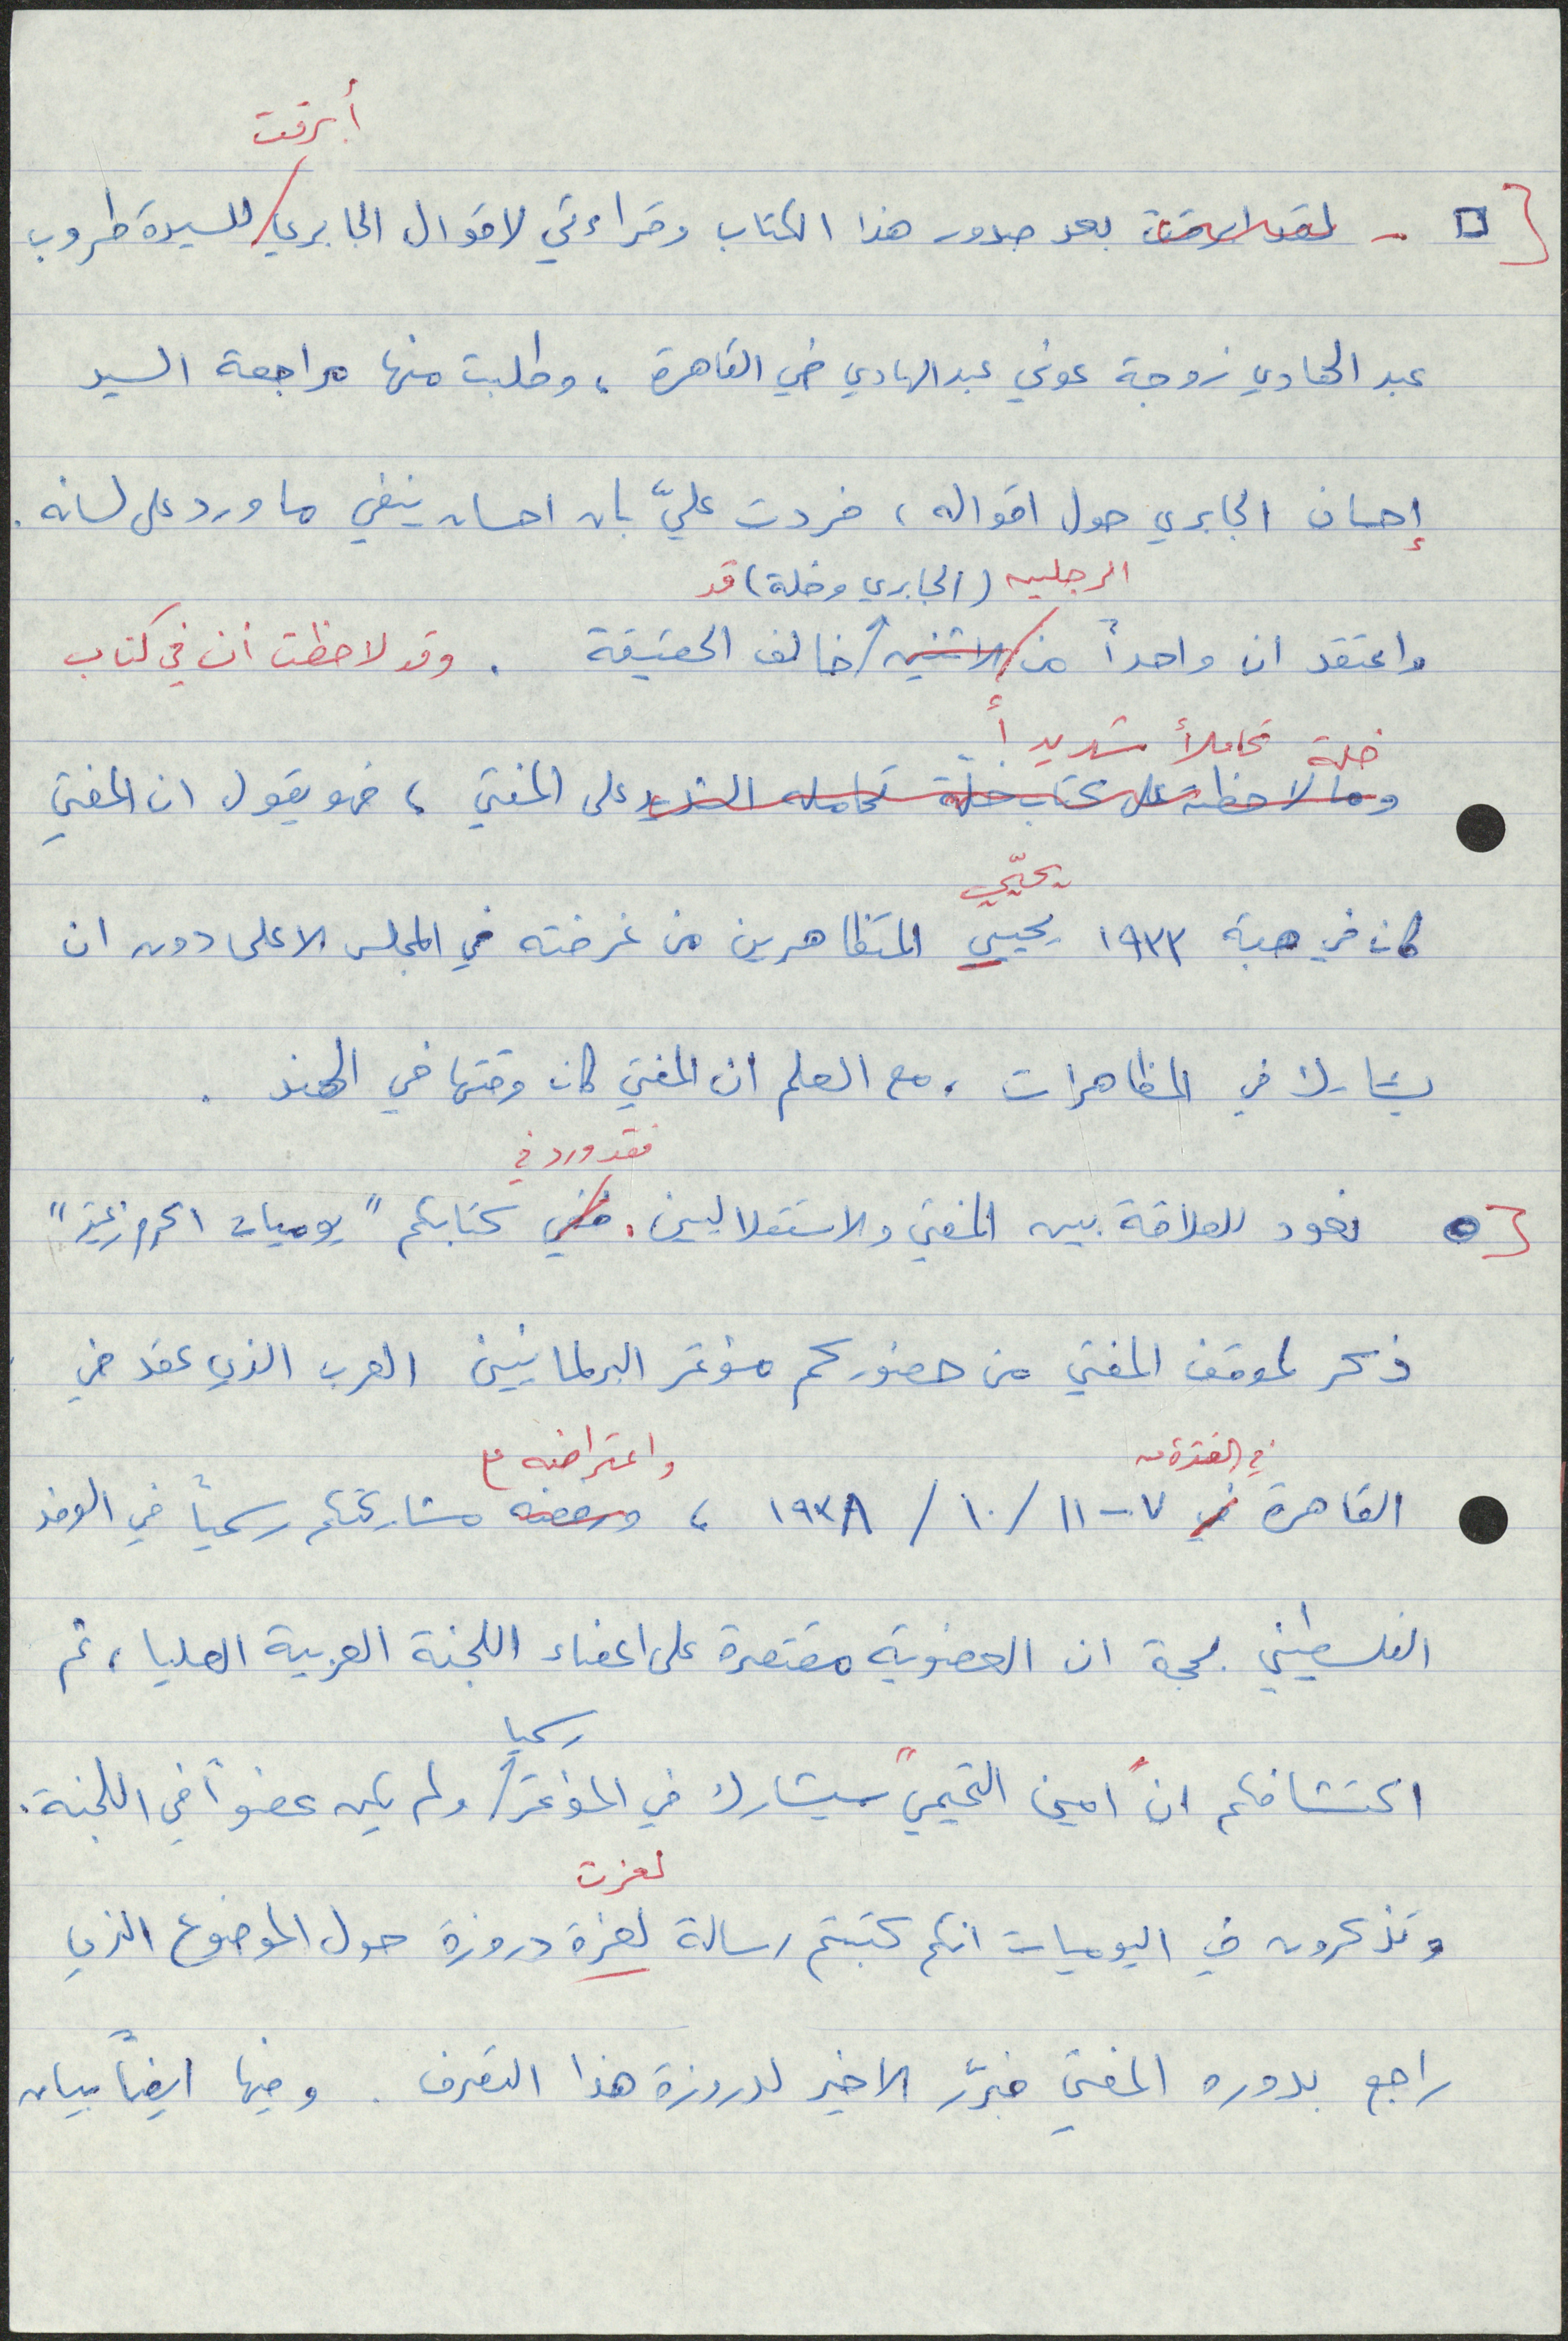 أبرقت
□ - لقد ابرقت بعد صدور هذا الكتاب وقراءتي لاقوال الجابري / للسيدة طروب
عبد الهادي زوجة عوني عبد الهادي في القاهرة ، وطلبت منها مراجعة السيد
إحسان الجابري حول اقواله ، فردت عليّ بان احسان ينفي ما ورد على لسانه .
الرجلين (الجابري وخلة) قد
واعتقد ان واحداً من الاثنين خالف الحقيقة . وقد لاحظت أن في كتاب
خلة تحاملاً شديداً
وما لاحظته على كتاب خلّة تحامله الشديد على المفتي ، فهو يقول ان المفتي
يحيّي
كان في هبة ١٩٣٣ يحيي المتظاهرين من غرفته في المجلس الاعلى دون ان
يشارك في المظاهرات ، مع العلم ان المفتي كان وقتها في الهند .
فقد ورد في
● نعود للعلاقة بين المفتي والاستقلاليين . ففي كتابكم " يوميات اكرم زعيتر "
ذكر لموقف المفتي من حضوركم مؤتمر البرلمانيين العرب الذي عقد في
في الفترة من
واعتراضه ع
القاهرة في ٧-١١ / ١٠ / ١٩٣٨ ، ورفضه مشاركتكم رسمياً في الوفد
الفلسطيني بحجة ان العضوية مقتصرة على اعضاء اللجنة العربية العليا ، ثم
رسميا
اكتشافكم ان "امين التميمي" سيشارك في المؤتمر / ولم يكن عضواً في اللجنة .
لعزت
وتذكرون في اليوميات انكم كتبتم رسالة لعزة دروزة حول الموضوع الذي
راجع بدوره المفتي فبرَّر الاخير لدروزة هذا التصرف . وفيها ايضاً بيان